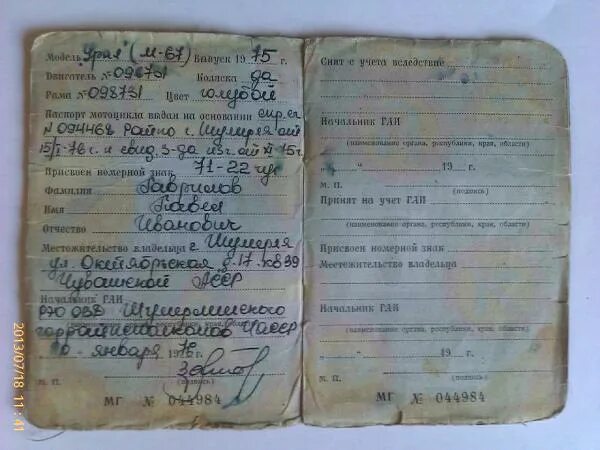 Модель "Урал" (М-67) Выпуск 1975 г.
Двигатель № 098731 Коляска да
Рама № 098731 Цвет голубой
Паспорт мотоцикла выдан на основании спр. сч
№ 094468 Райпо г. Шумерля от
15/I-76 г. и свид. з-да изг. от XI-75 г.
Присвоен номерной знак 71-22
Фамилия Гаврилов
Имя Павел
Отчество Иванович
Местожительство владельца г. Шумерля
ул. Октябрьская д-17 кв 39
Чувашской АССР
Начальник ГАИ
РЭО ОВД Шумерлинского
ЧАССР
января 1976 г.
(подпись)
М. П.
МГ № 044984
Снят с учета вследствие
Начальник ГАИ
(наименование органа, республики, края, области)
" " 19 г.
М. П. (подпись)
Принят на учет ГАИ
(наименование органа, республики, края, области)
Присвоен номерной знак
Местожительство владельца
Начальник ГАИ
(наименование органа, республики, края, области)
" " 19 г.
М. П. (подпись)
МГ № 044984
2013/07/18 11:41